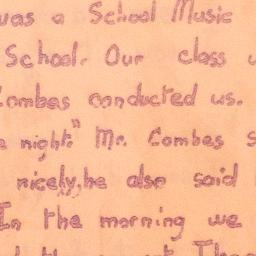 was a School Music
School. Our class
Combes conducted us.
night." Mr. Combes
nicely, he also said
In the morning we